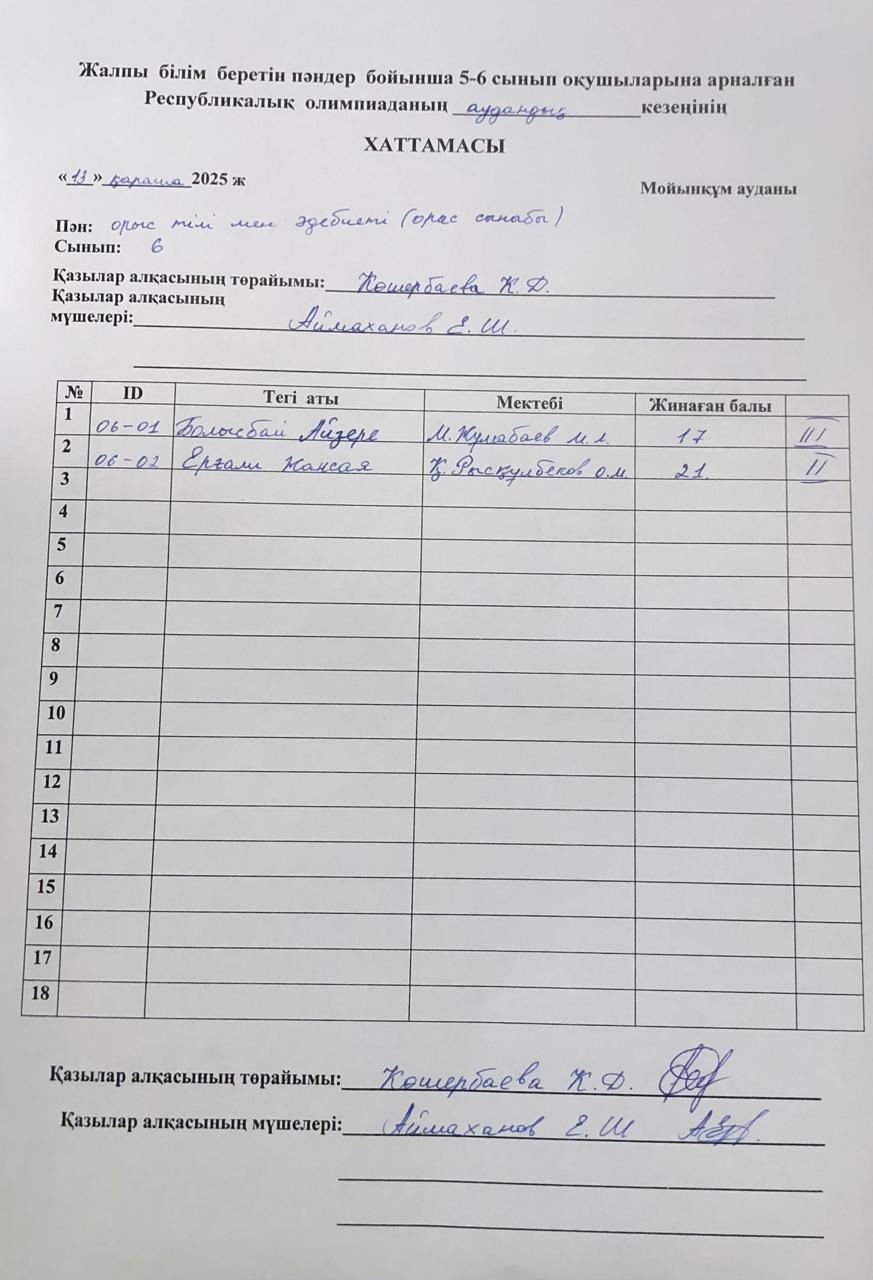 Жалпы білім беретін пәндер бойынша 5-6 сынып оқушыларына арналған
Республикалық олимпиаданың аудандық кезеңінің
ХАТТАМАСЫ
«13» қараша 2025 ж
Мойынқұм ауданы
Пән: орыс тілі мен әдебиеті (орыс сыныбы)
Сынып: 6
Қазылар алқасының төрайымы: Көшербаева К.Д.
Қазылар алқасының
мүшелері: Аймаханов Е.Ш.
№ ID Тегі аты Мектебі Жинаған балы
1 06-01 Болысбай Айзере М.Жұмабаев м.л. 17 III
2 06-02 Ерғали Жансая Қ.Рысқұлбеков о.м. 21. II
3
4
5
6
7
8
9
10
11
12
13
14
15
16
17
18
Қазылар алқасының төрайымы: Көшербаева К.Д.
Қазылар алқасының мүшелері: Аймаханов Е.Ш